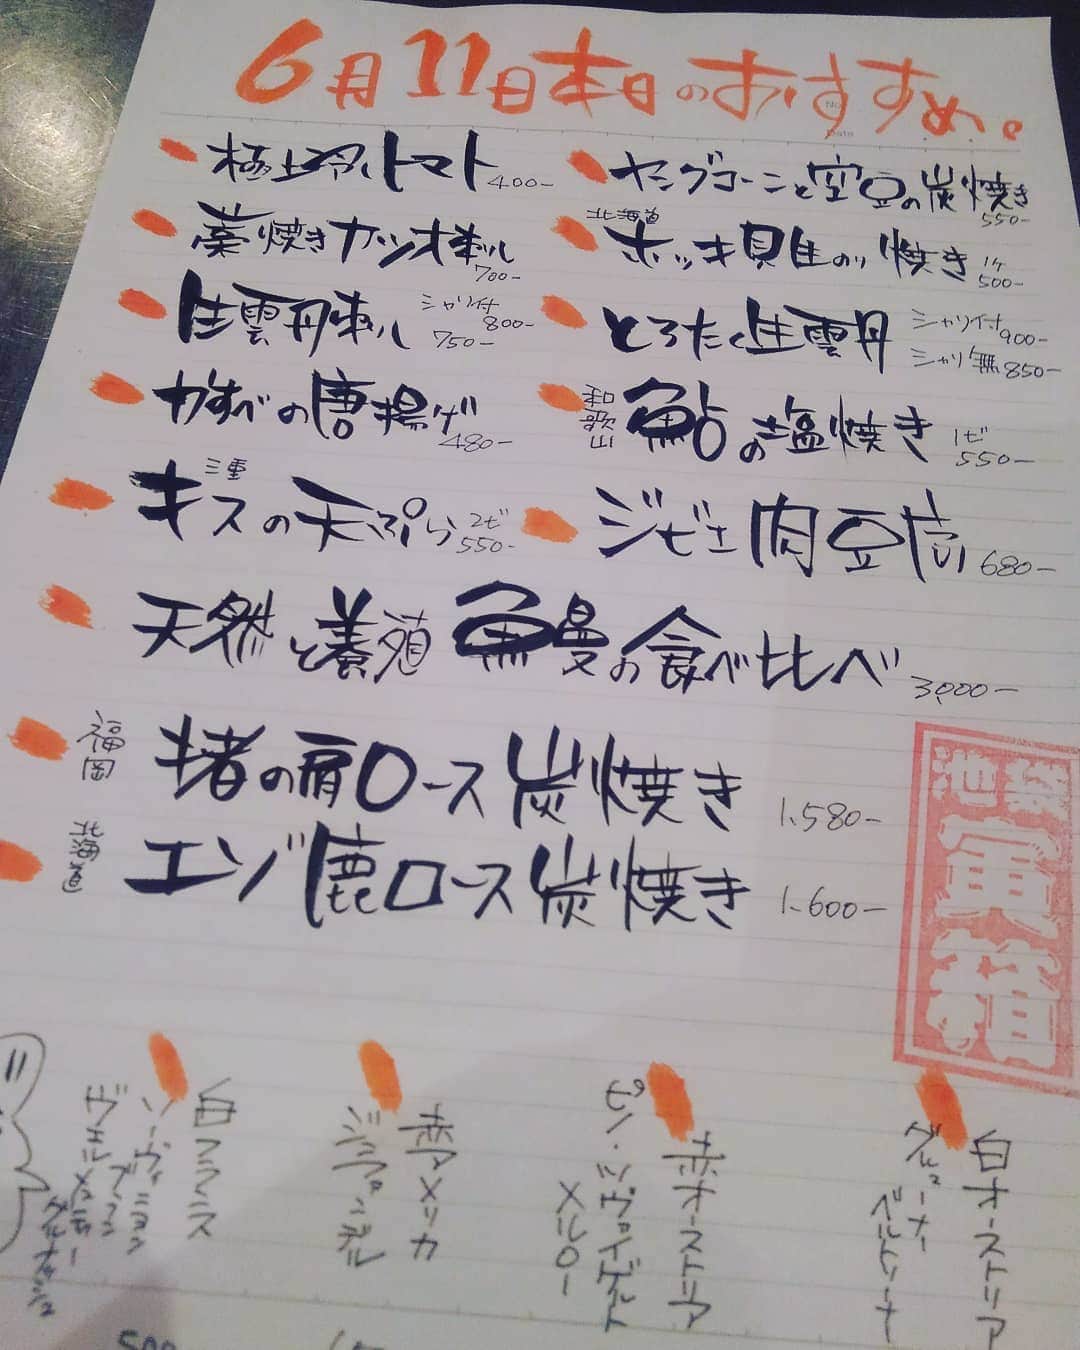 6月11日本日のおすすめ。
極上冷しトマト 400-
藁焼きカツオ刺し 700-
生雲丹刺し シャリ付 800- 750-
かすべの唐揚げ 480-
三重 キスの天ぷら 2ピ 550-
ヤングコーンと空豆の炭焼き 550-
北海道 ホッキ貝の 焼き 1ケ 500-
とろたく生雲丹 シャリ付 900- シャリ無 850-
和歌山 鮎の塩焼き 1ピ 550-
ジビエ肉豆腐 680-
天然と養殖 鰻の食べ比べ 3,000-
福岡 猪の肩ロース炭焼き 1,580-
北海道 エゾ鹿ロース炭焼き 1,600-
池袋
箱
白オーストリア
グリューナー
ベルトリーナー
赤オーストリア
ピノ・ツヴァイゲルト
メルロー
赤アメリカ
ジンファンデル
白フランス
ソーヴィニヨン
ブラン
ヴェルメンティーノ